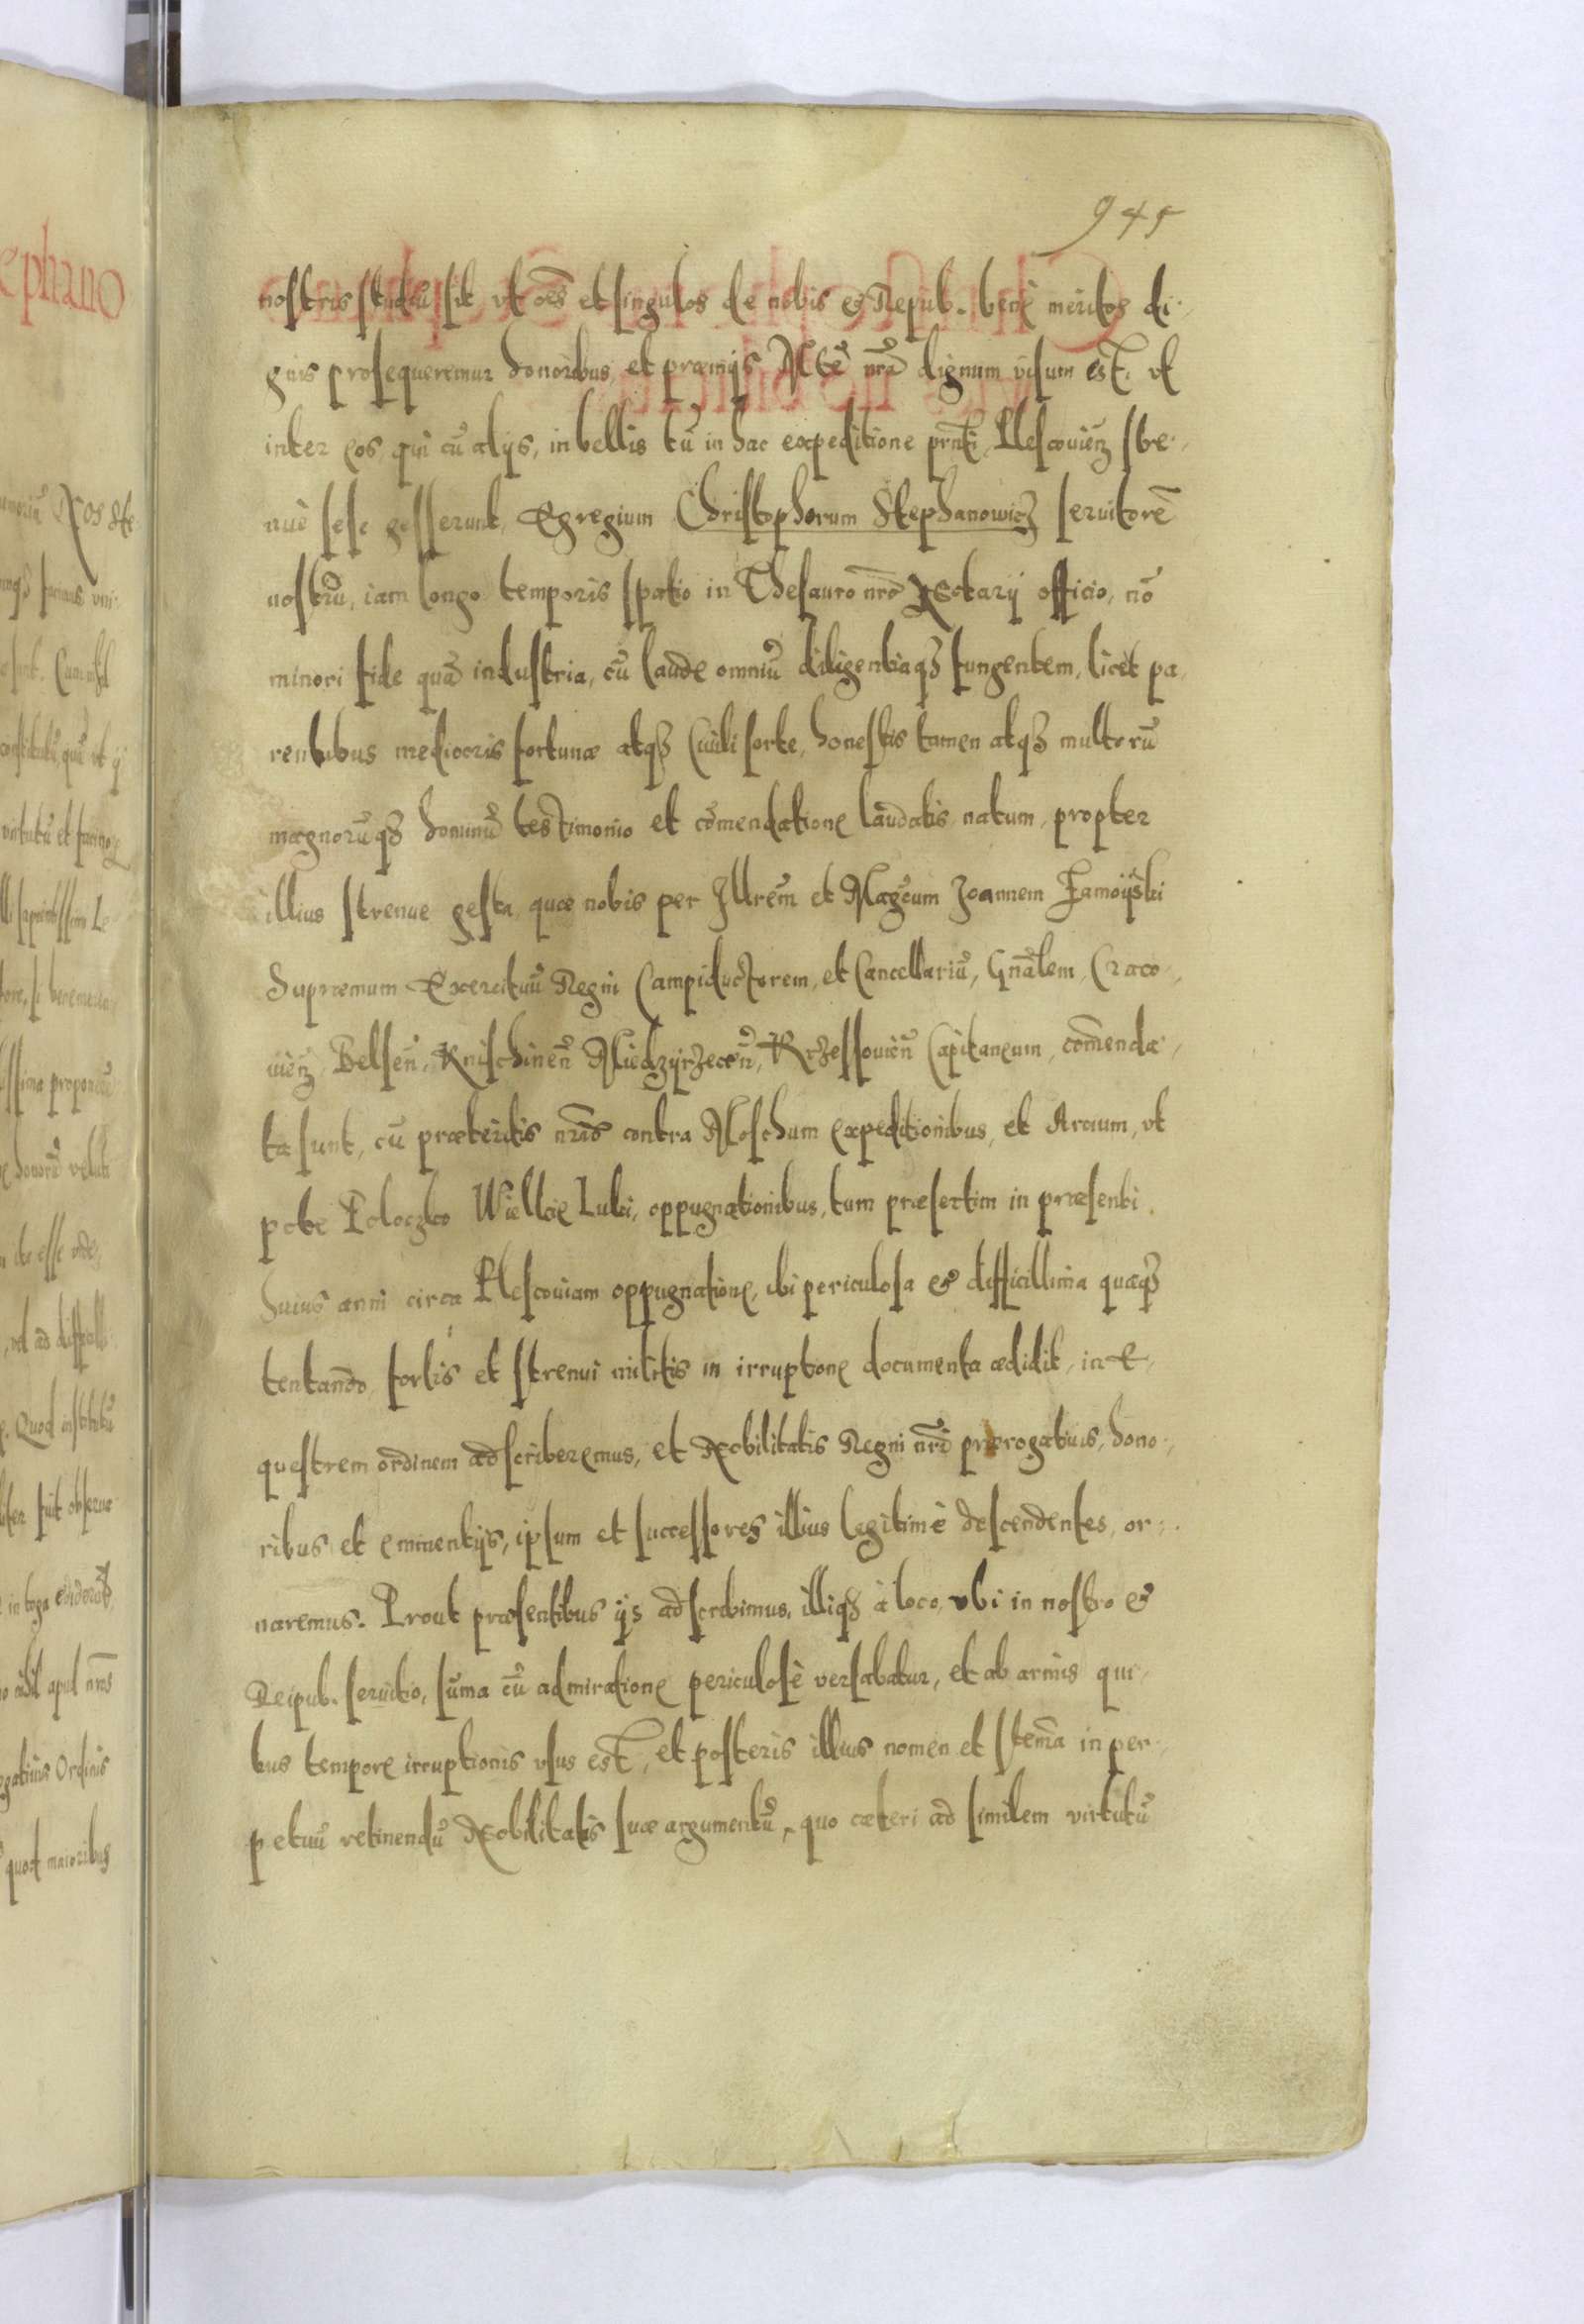 945
nostris studiū sit vt oēs et singulos de nobis & Repub. bene meritos di-
gnis prosequeremur honoribus et præmijs Mte nrā dignum visum est. vt
inter eos qui cū alijs, in bellis tū in hac expeditione prnti Plescouien̄ stre-
nuè sese gesserunt, Egregium Christophorum Stephanowicz seruitorē
nostrū, iam longo temporis spatio in Thesauro nrō Notarij officio, nō
minori fide quā industria, cū laude omniū diligentiaqȝ fungentem, licet pa-
rentibus mediocris fortunæ atqȝ Ciuili sorte, honestis tamen atqȝ multorū
magnorūqȝ hominū testimonio et cōmendatione laudatis natum, propter
illius strenue gesta quæ nobis per Illrem̄ et Magcum Joannem Zamoijski
Supræmum Exercituū Regni Campiductorem, et Cancellariū, Gnālem, Craco-
uien̄, Belsen̄, Knischinen̄ Miedzyrzecen̄, Krzessouien̄ Capitaneum, com̄enda-
ta sunt, cū præteritis nrīs contra Moschum expeditionibus, et Arcium, vt
pote Poloczko Wielkie Luki, oppugnationibus, tum præsertim in præsenti
huius anni circa Plescouiam oppugnatione, ibi periculosa & difficillima quæqȝ
tentando, fortis et strenui militis in irruptione documenta ædidit, in E-
questrem ordinem adscriberemus, et Nobilitatis Regni nrī prærogatiuis, hono-
ribus et eminentijs, ipsum et successores illius legitimè descendentes, or-
naremus. Prout præsentibus ijs adscribimus, illiqȝ à loco, vbi in nostro &
Reipub. seruitio, sūma cū admiratione periculosè versabatur, et ab armis qui-
bus tempore irruptionis vsus est, et posteris illius nomen et stem̄a in per-
petuū retinendū Nobilitatis suæ argumentū, quo cæteri ad similem virtutū